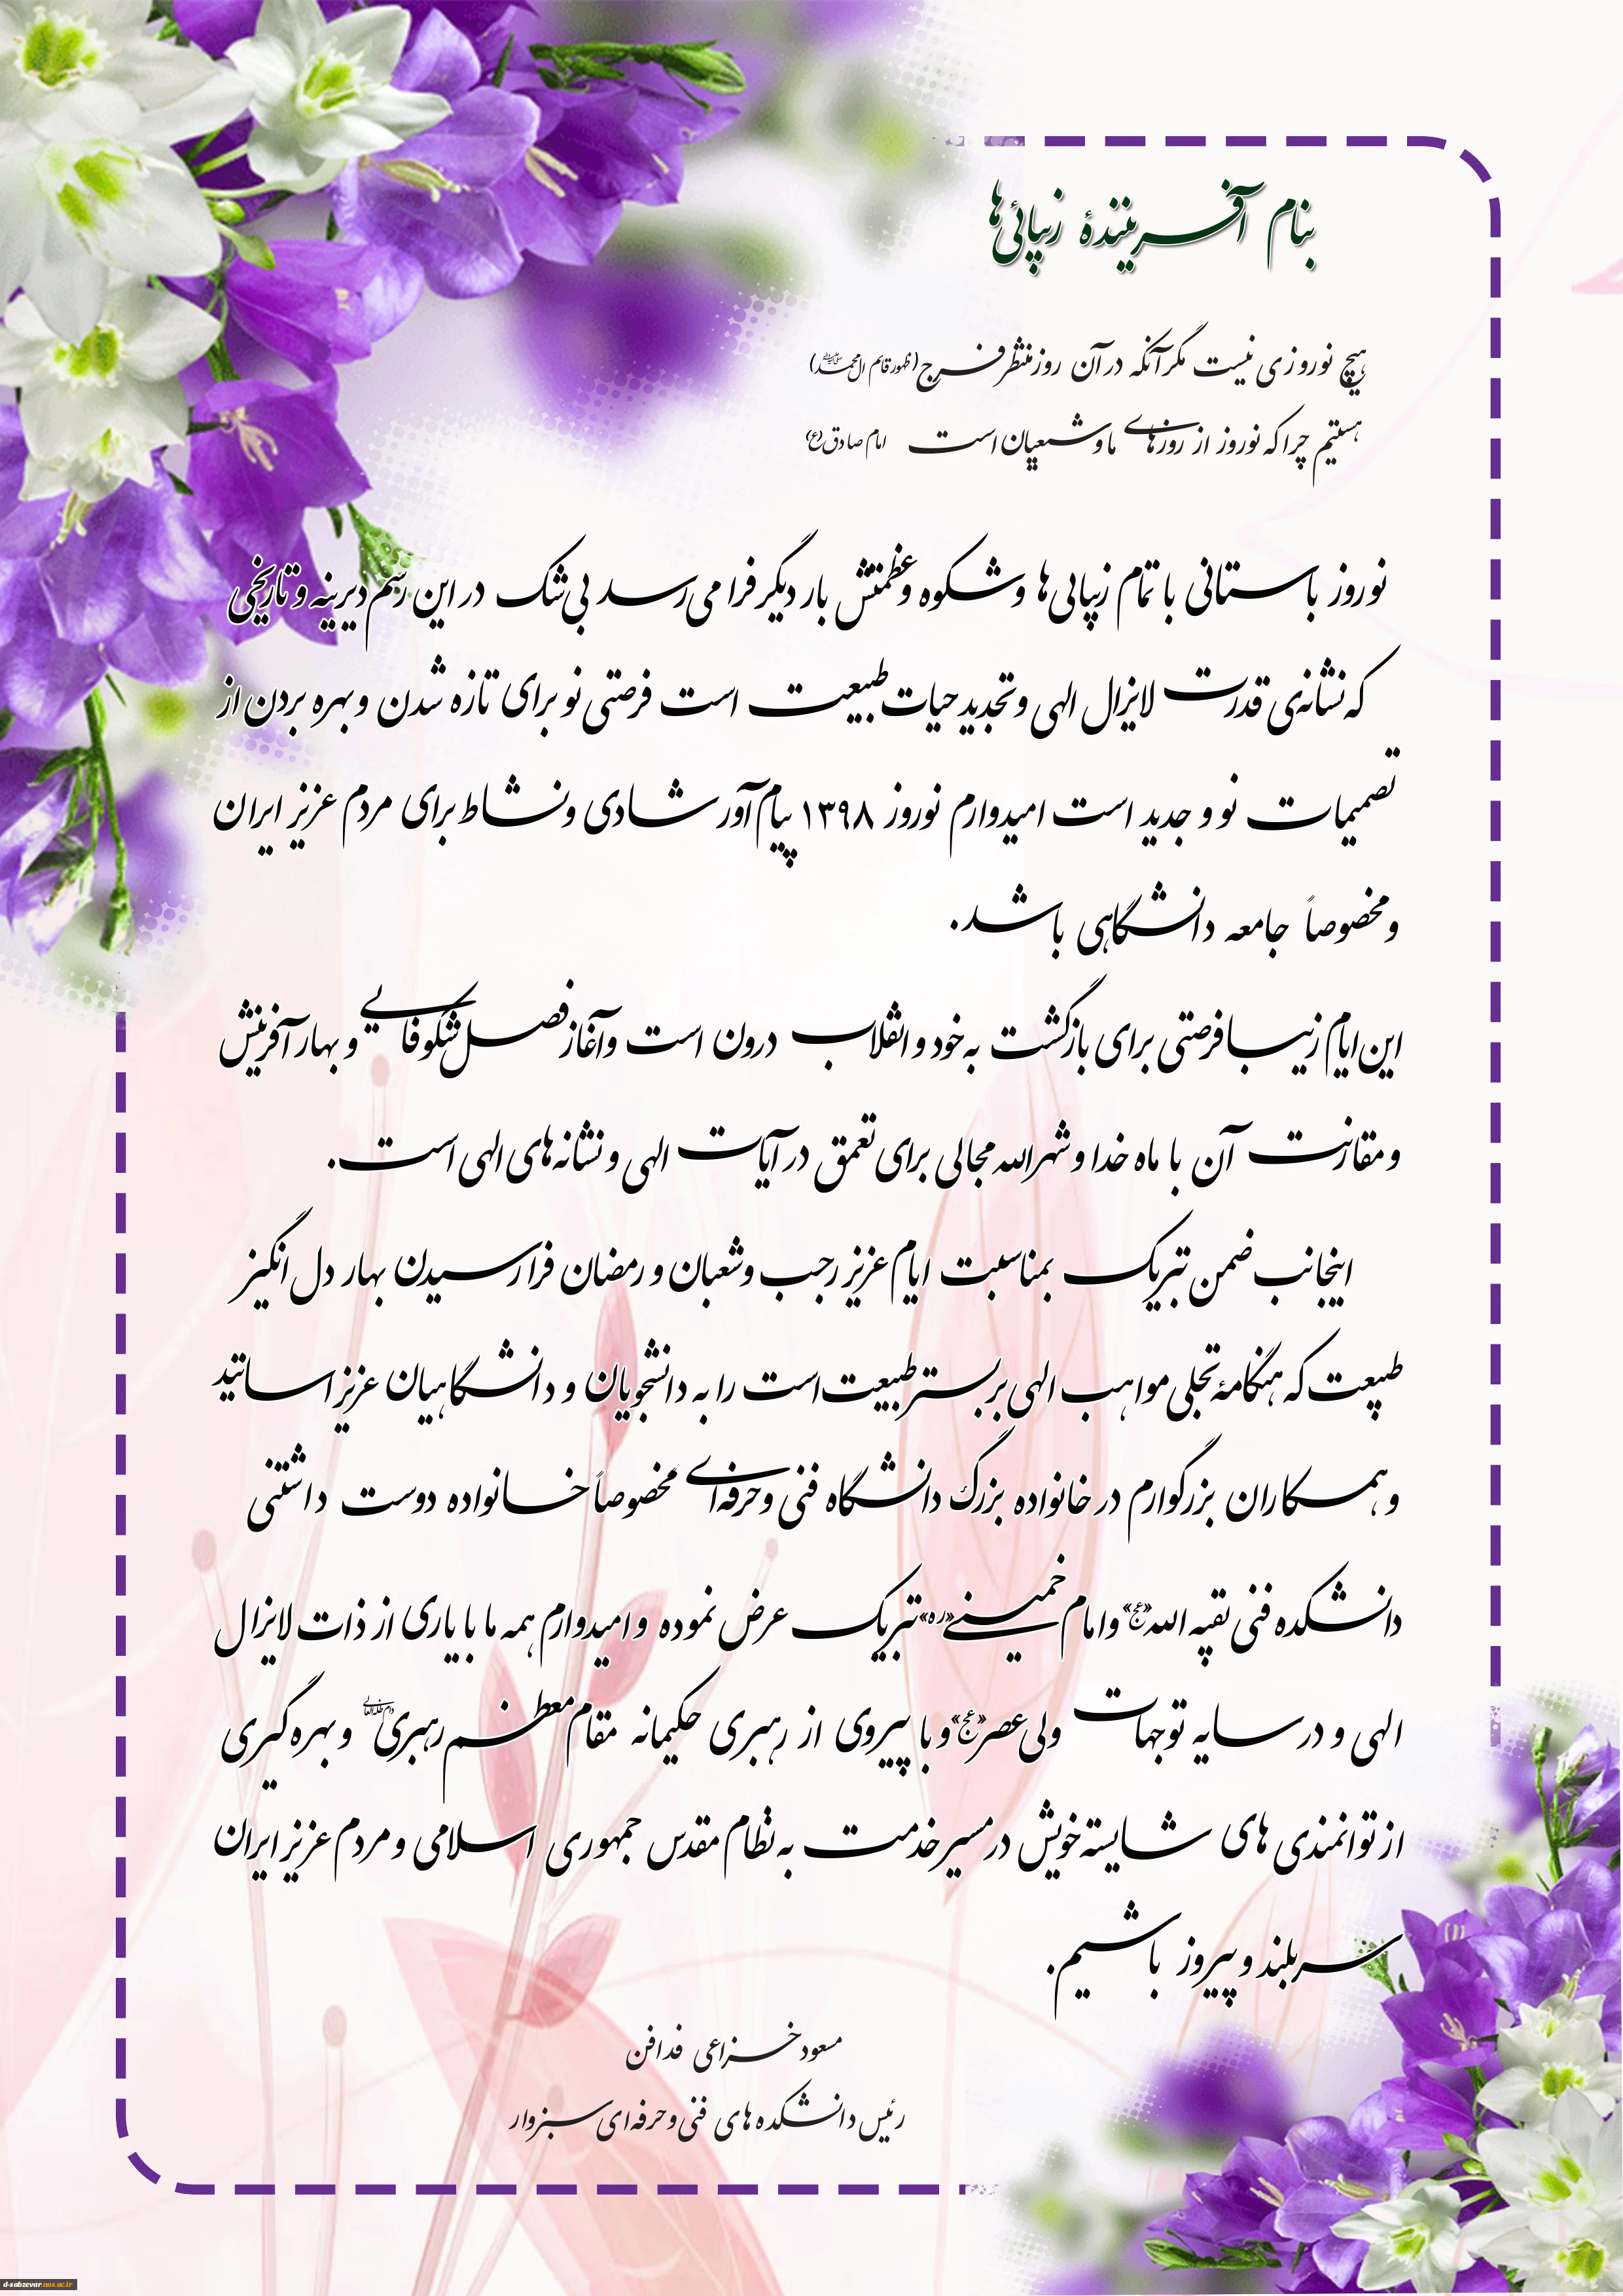 بنام آفرینندهٔ زیبائی‌ها
هیچ نوروزی نیست مگر آنکه در آن روز منتظر فرج (ظهور قایم ال محمد)
هستیم چرا که نوروز از روزهای ما و شیعیان است امام صادق (ع)
نوروز باستانی با تمام زیبایی‌ها و شکوه و عظمتش بار دیگر فرا می‌رسد بی‌شک در این رسم دیرینه و تاریخی
که نشانه‌ی قدرت لایزال الهی و تجدید حیات طبیعت است فرصتی نو برای تازه شدن و بهره بردن از
تصمیمات نو و جدید است امیدوارم نوروز ۱۳۹۸ پیام‌آور شادی و نشاط برای مردم عزیز ایران
و مخصوصاً جامعه دانشگاهی باشد.
این ایام زیبا فرصتی برای بازگشت به خود و انقلاب درون است و آغاز فصل شکوفایی و بهار آفرینش
و مقارنت آن با ماه خدا و شهرالله مجالی برای تعمق در آیات الهی و نشانه‌های الهی است.
اینجانب ضمن تبریک بمناسبت ایام عزیز رجب و شعبان و رمضان فرا رسیدن بهار دل انگیز
طبیعت که هنگامهٔ تجلی مواهب الهی بر بستر طبیعت است را به دانشجویان و دانشگاهیان عزیز اساتید
و همکاران بزرگوارم در خانواده بزرگ دانشگاه فنی و حرفه‌ای مخصوصاً خانواده دوست داشتنی
دانشکده فنی بقیه الله «عج» و امام خمینی «ره» تبریک عرض نموده و امیدوارم همه ما با یاری از ذات لایزال
الهی و در سایه توجهات ولی عصر «عج» و با پیروی از رهبری حکیمانه مقام معظم رهبری و بهره گیری
از توانمندی های شایسته خویش در مسیر خدمت به نظام مقدس جمهوری اسلامی و مردم عزیز ایران
سربلند و پیروز باشیم.
مسعود خزاعی فدافن
رئیس دانشکده های فنی و حرفه ای سبزوار
d-sabzevar.nus.ac.ir